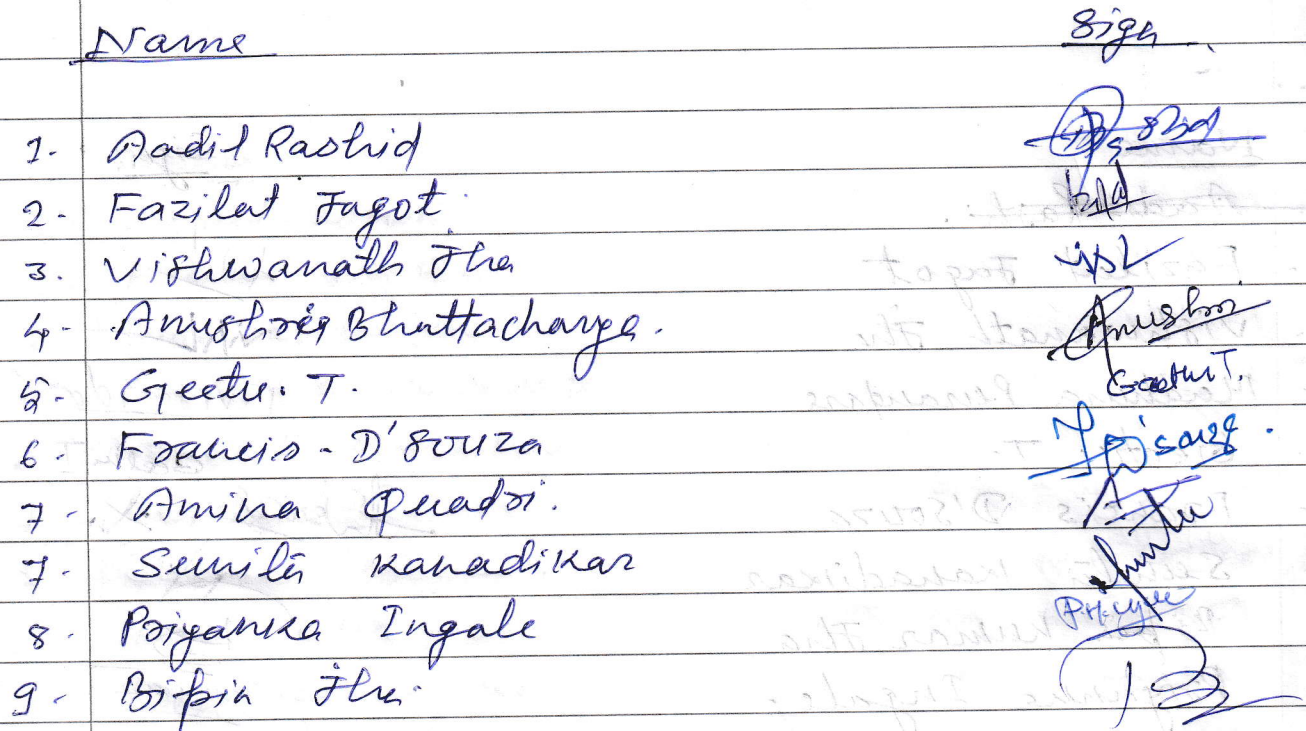 Name Sign
1. Aadil Rashid
2. Fazilat Jagot
3. Vishwanath Jha
4. Anushree Bhattacharya. Anushri
5. Geetu. T. Geethu T.
6. Francis - D'souza D'souza
7. Amina Quadri.
7. Sunita Kanadikar Sunita
8. Priyanka Ingale
9. Bipin Jha